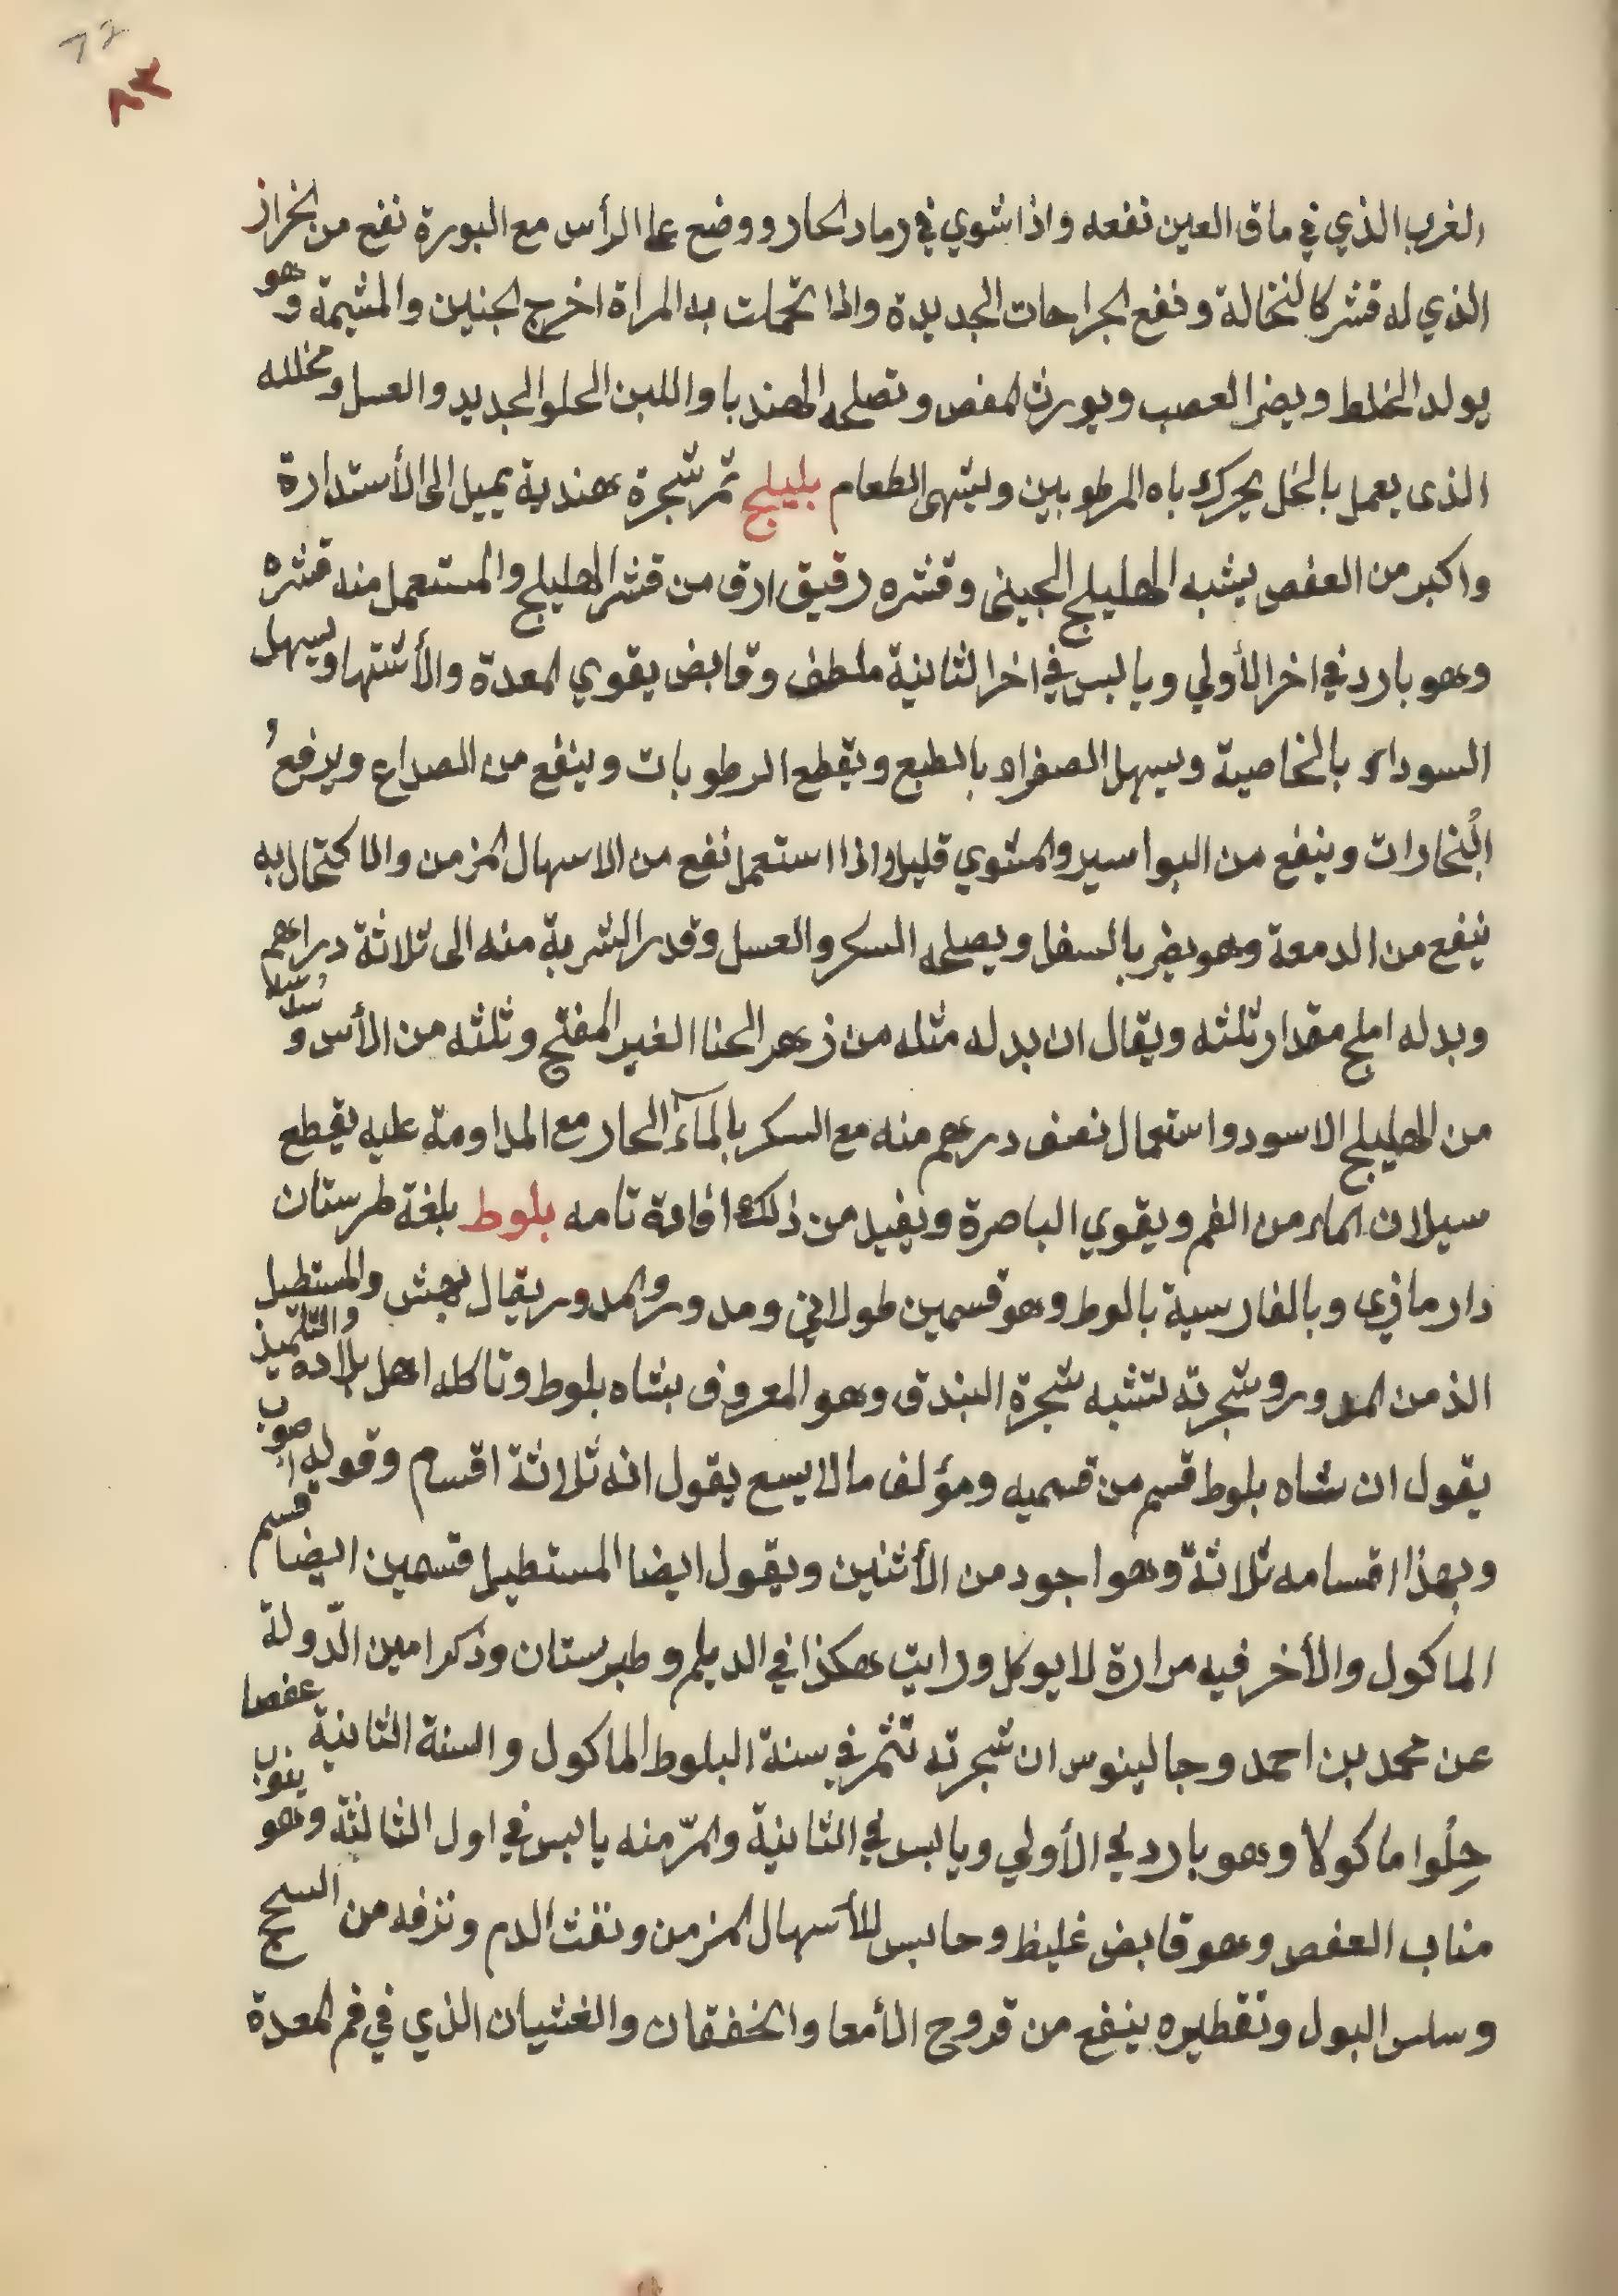 72
٨٣
الغرب الذي في ماق العين نفعه واذا شوي في رماد الحار ووضع علي الرأس مع البورة نفع من الخراز
الذي له قشر كالنخالة ونفع الجراحات الجديدة واذا تحملت به المراة اخرج الجنين والمشيمة وهو
يولد الخلط ويضر العصب ويورث المغص وتصلحه الهندبا واللبن الحلو الجديد والعسل ومخلله
الذى يعمل بالخل يحرك باه المرطوبين ويشهى الطعام بليلج ثمر شجرة هندية يميل الى الأستدارة
واكبر من العفص يشبه الهليلج الجينى وقشره رقيق ارق من قشر الهليلج والمستعمل منه قشره
وهو بارد في اخر الأولي ويابس في اخر الثانية ملطف وقابض يقوي المعدة والأشتها ويسهل
السوداء بالخاصية ويسهل الصفراء بالطبع ويقطع الرطوبات وينفع من الصداع ويرفع
البُخارات وينفع من البواسير والمشوي قليلا واذا استعمل نفع من الاسهال المزمن والاكتحال به
ينفع من الدمعة وهو يضر بالسفل ويصلحه السكر والعسل وقدر الشربة منه الى ثلاثة دراهم
وبدله املج مقدار ثلثه ويقال ان بدله مثله من زهر الحنا الغير المفتح وثلثه من الأس و
من الهليلج الاسود واستعمال نصف درهم منه مع السكر بالمآء الحار مع المداومة عليه يقطع
سيلان الماء من الفم ويقوي الباصرة ويفيد من ذلك افادة تامه بلوط بلغة طرستان
دار مازى وبالفارسية بالوط وهو قسمين طولاني ومدور والمدور يقال بهش والمستطيل
الذ من المدور وشجرته تشبه شجرة البندق وهو المعروف بشاه بلوط وتاكله اهل بلاده والتلميذ
يقول ان شاه بلوط قسم من قسميه ومؤلف مالا يسع يقول انه ثلاثة اقسام وقوله اصوب
وبهذا اقسامه ثلاثة وهو اجود من الأثنين ويقول ايضا المستطيل قسمين ايضا قسم
الماكول والأخر فيه مرارة لا يوكل ورايت هكذا في الديلم وطبرستان وذكر امين الدّولة
عن محمد بن احمد وجالينوس ان شجرته تثمر في سنة البلوط الماكول والسنة الثانية عفصا
حِلُوا ماكولا وهو بارد في الأولي ويابس في الثانية والمرّ منه يابس في اول الثالثة وهو ينوب
مناب العفص وهو قابض غليظ وحابس للأسهال المزمن ونفث الدم ونزفه من السحج
وسلس البول وتقطيره ينفع من قروح الأمعا والخفقان والغثيان الذي في فم المعدة